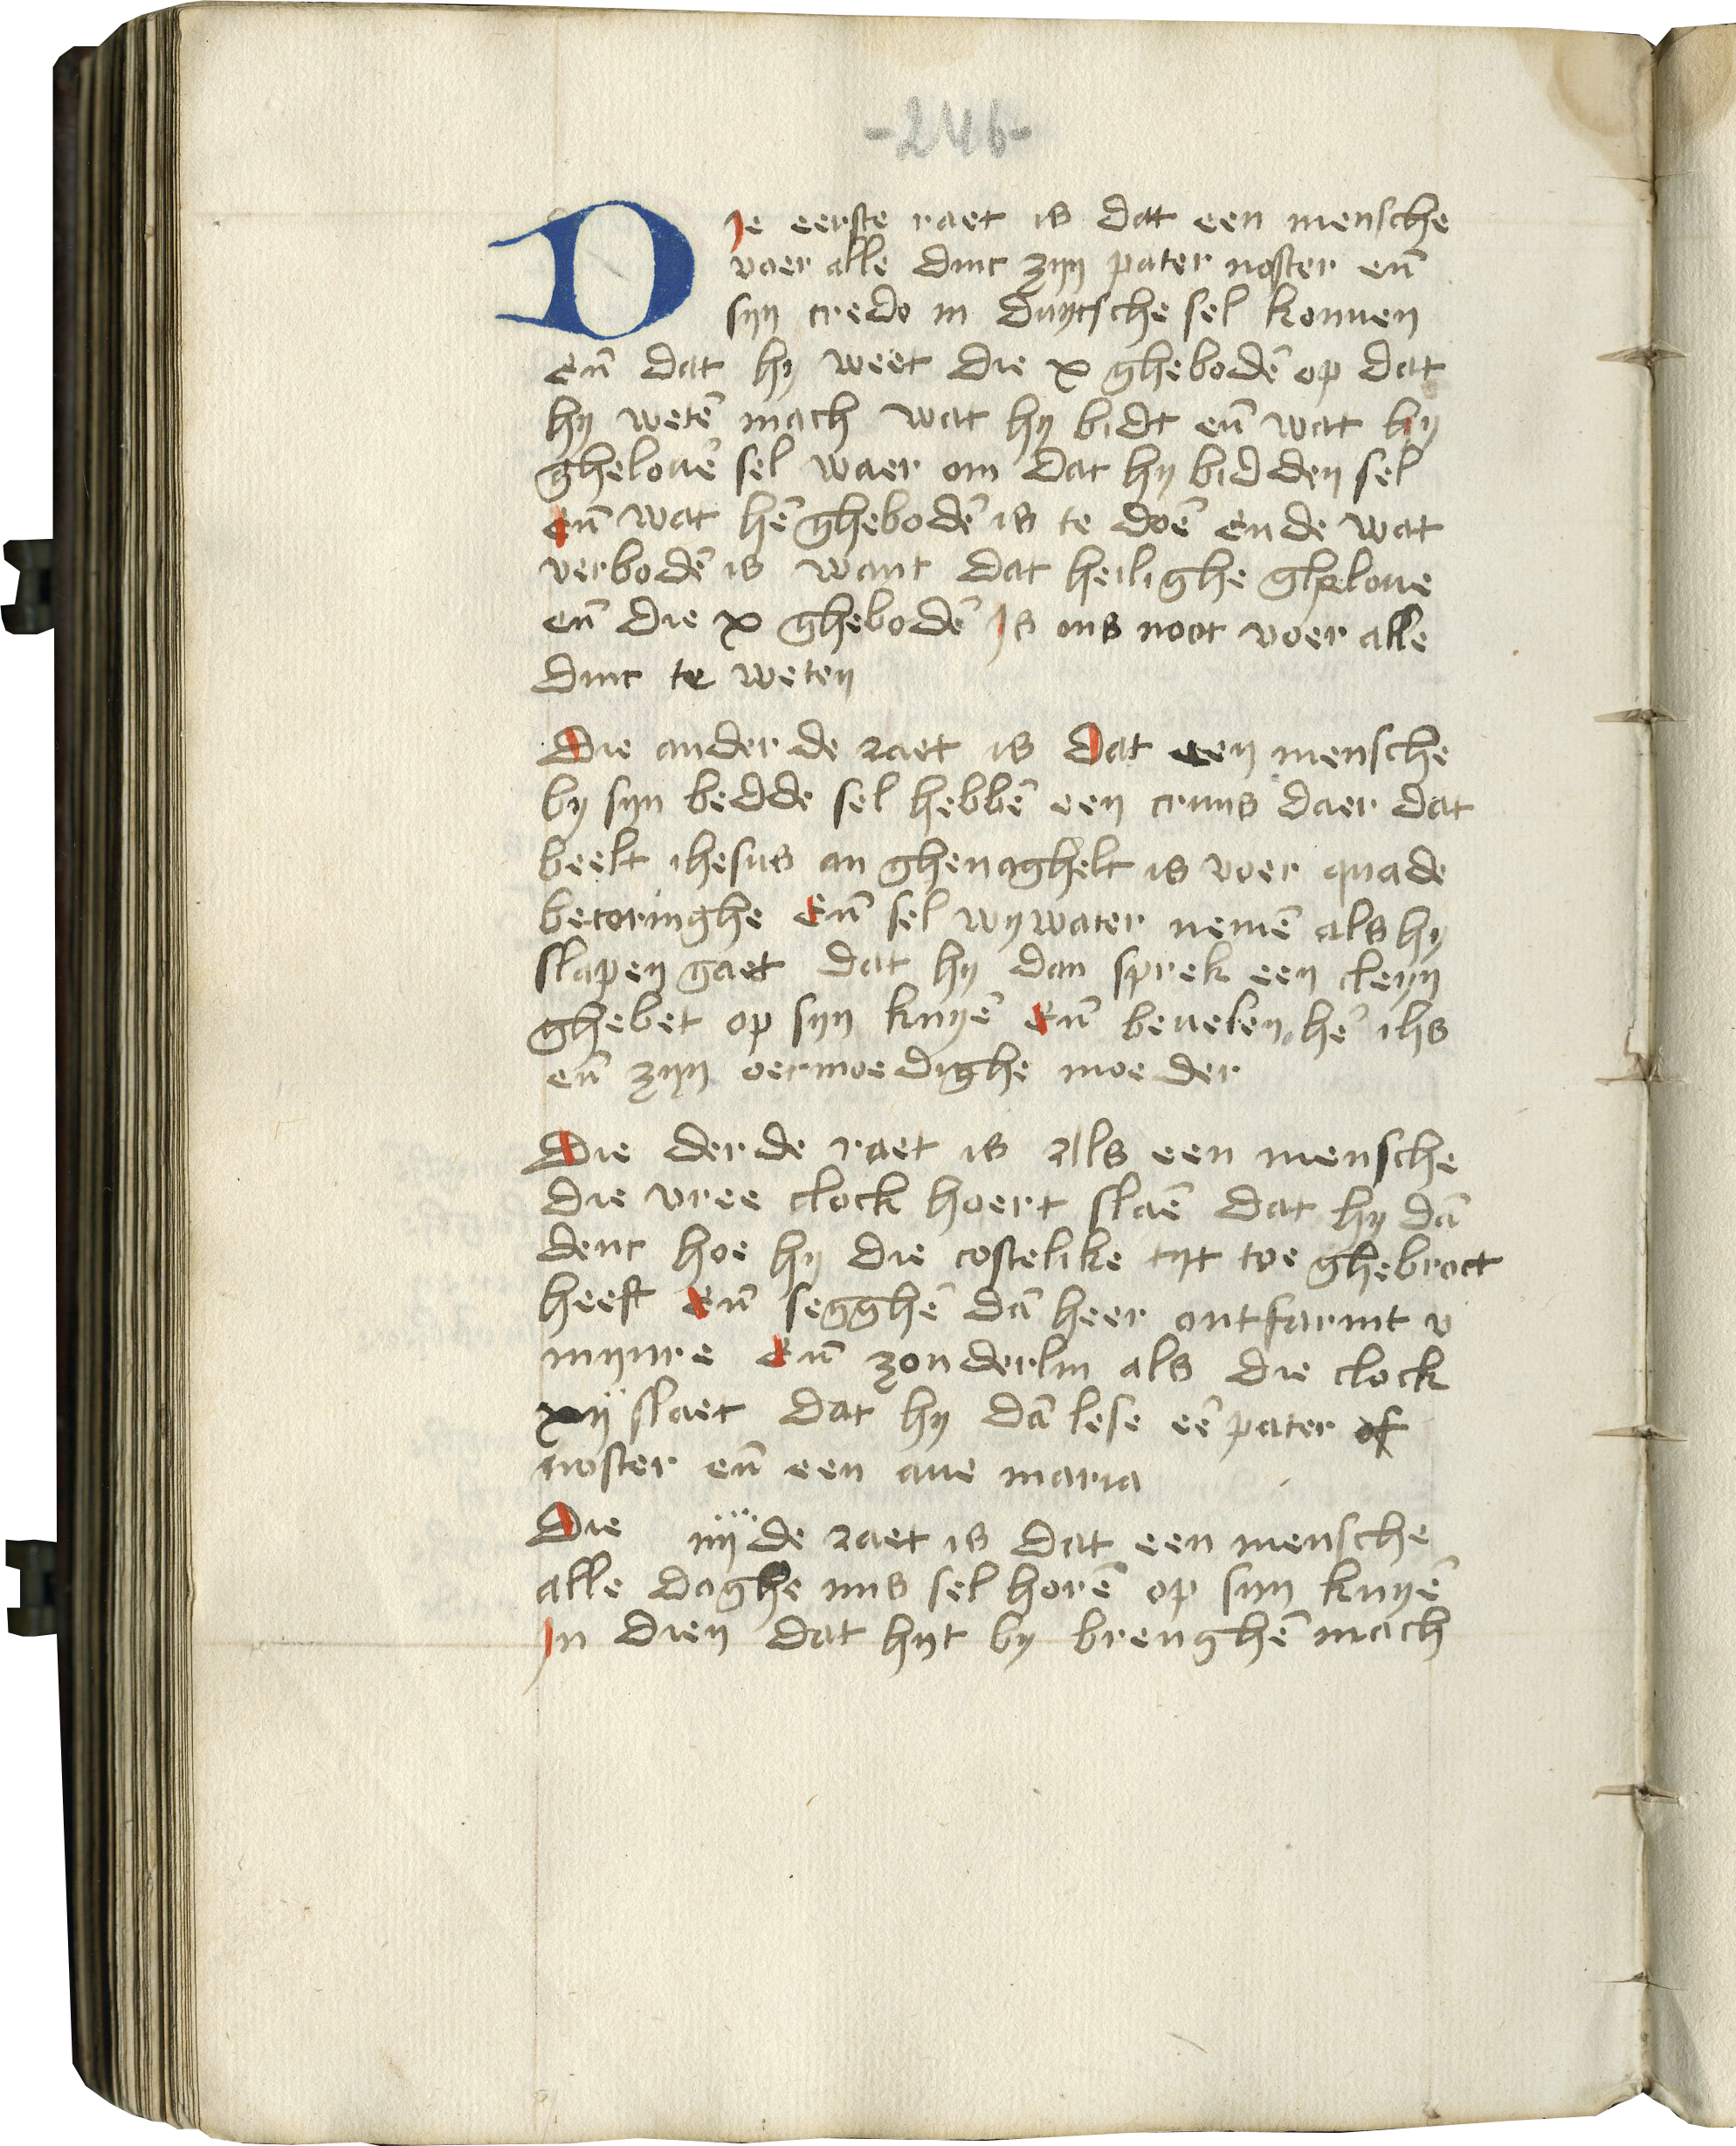 -246-
Die eerste raet is dat een mensche
voer alle dinc zijn pater noster eñ
sijn credo in duytsche sel konnen
eñ dat hij weet die x ghebodē op dat
hij wetē mach wat hij bidt eñ wat hij
ghelouē sel waer om dat hij bidden sel
eñ wat hē ghebodē is te doē ende wat
verbodē is want dat heilighe gheloue
eñ die x ghebodē Is ons noot voer alle
dinc te weten
Die ander de raet is Dat een mensche
by sijn bedde sel hebbē een cruus daer dat
beelt ihesus an ghenaghelt is voer quade
becoringhe Eñ sel wywater nemē als hij
slapen gaet dat hij dan sprek een cleyn
ghebet op sijn knyē Eñ beuelen hē ihs
eñ zijn oermoedighe moeder
Die derde raet is als een mensche
die vree clock hoert slaē dat hij dā
denc hoe hij die costelike tijt toe ghebroct
heeft Eñ segghē dā heer ontfarmt v
mijnre Eñ zonderlin als die clock
xij slaet dat hij dā lese eē pater of
noster eñ een aue maria
Die iiij de raet is dat een mensche
alle daghe mis sel horē op sijn knyē
In dien dat hijt by brenghē mach